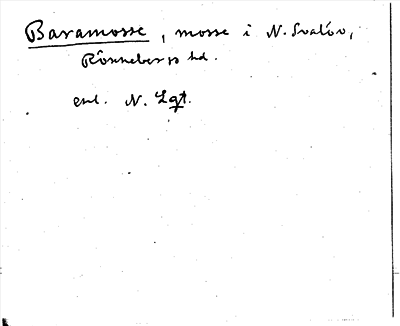 Baramosse, mosse i N. Svalöv,
Rönnebergs hd.
enl. N. Lgt.